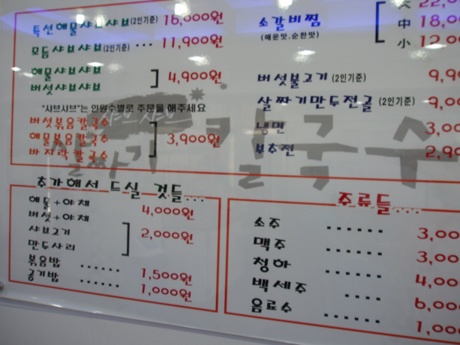 특선해물샤브샤브(2인기준) 16,000원
모듬샤브샤브(2인기준) ... 11,900원
해물샤브샤브
버섯샤브샤브 ] 4,900원
"샤브샤브"는 인원수별로 주문을 해주세요
버섯볶음칼국수
해물볶음칼국수
바지락칼국수 ] 3,900원
소갈비찜
(매운맛,순한맛)
中 18,0
小 12,0
버섯불고기 (2인기준) 9,9
살짝기만두전골 (2인기준) 9,00
냉면 3,00
부추전 2,9
칼국수
추가해서 드실 것들...
해물+야채 4,000원
버섯+야채
샤브고기
만두사리 ] 2,000원
볶음밥 ...... 1,500원
공기밥 ...... 1,000원
주류들....
소주 ...... 3,00
맥주 ...... 3,00
청하 ...... 4,00
백세주 ...... 6,00
음료수 ...... 1,00